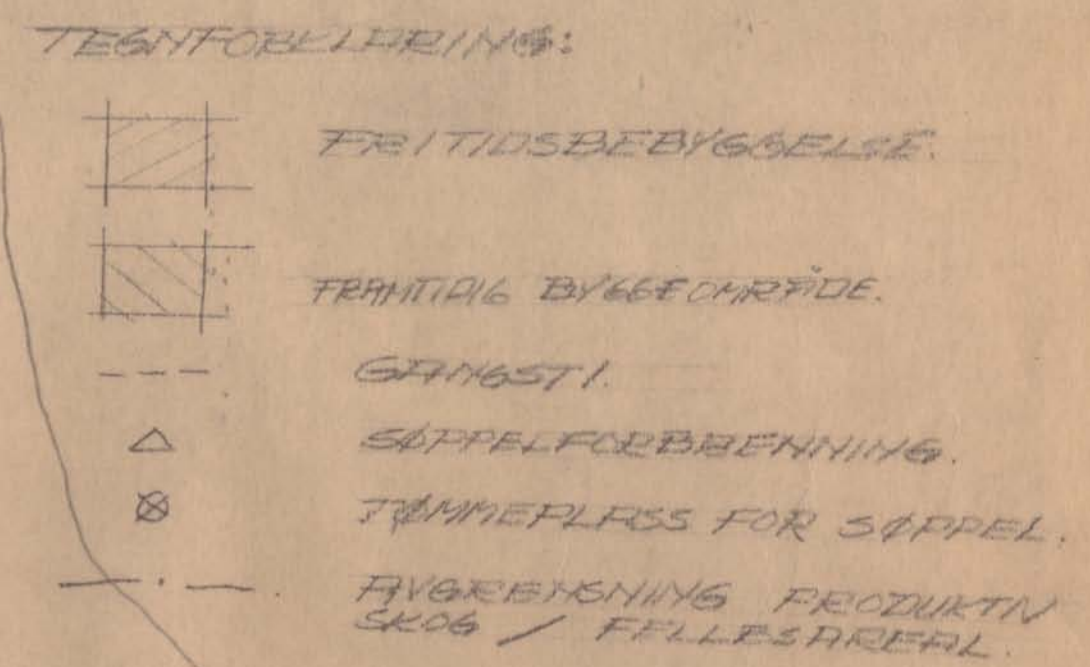 TEGNFORKLARING:
FRITIDSBEBYGGELSE.
FRAMTIDIG BYGGEOMRÅDE.
GANGSTI.
SØPPELFORBRENNING.
TØMMEPLASS FOR SØPPEL.
AVGRENSNING PRODUKTIV
SKOG / FELLESAREAL.